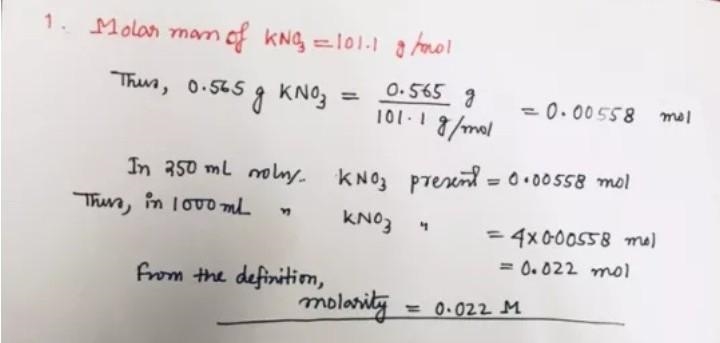 1. Molar mass of KNO3 = 101.1 g/mol
Thus, 0.565 g KNO3 = 0.565 g / 101.1 g/mol = 0.00558 mol
In 250 mL soln. KNO3 present = 0.00558 mol
Thus, in 1000 mL " KNO3 " = 4x0.00558 mol
= 0.022 mol
From the definition,
molarity = 0.022 M